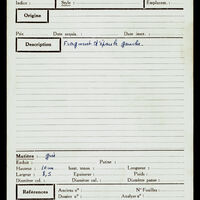 Indice : Style : Emplacem. :
Origine
Prix Date acquis. : Date inscr. :
Description Fragment d'épaule gauche.
Matière : grès
Enduit : Patine :
Hauteur : haut. tenon : Longueur :
Largeur : 8,5 Epaisseur : Poids :
Diamètre col. : Diamètre cul. : Diamètre panse :
Références Anciens nos : No Fouilles :
Dossier no : Analyse no :